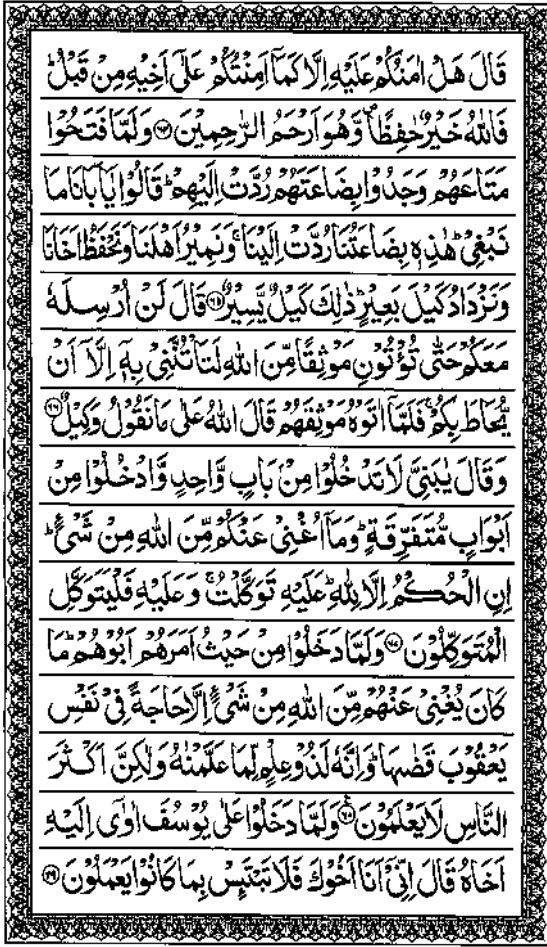 قَالَ هَلْ اٰمَنُكُمْ عَلَيْهِ اِلَّا كَمَاۤ اَمِنْتُكُمْ عَلٰۤى اَخِيْهِ مِنْ قَبْلُ ؕ
فَاللّٰهُ خَيْرٌ حٰفِظًا ۪ وَّهُوَ اَرْحَمُ الرّٰحِمِيْنَ ۝۶۴ وَلَمَّا فَتَحُوْا
مَتَاعَهُمْ وَجَدُوْا بِضَاعَتَهُمْ رُدَّتْ اِلَيْهِمْ ؕ قَالُوْا يٰۤاَبَانَا مَا
نَبْغِيْ ؕ هٰذِهٖ بِضَاعَتُنَا رُدَّتْ اِلَيْنَا ۚ وَنَمِيْرُ اَهْلَنَا وَنَحْفَظُ اَخَانَا
وَنَزْدَادُ كَيْلَ بَعِيْرٍ ؕ ذٰلِكَ كَيْلٌ يَّسِيْرٌ ۝۶۵ قَالَ لَنْ اُرْسِلَهٗ
مَعَكُمْ حَتّٰى تُؤْتُوْنِ مَوْثِقًا مِّنَ اللّٰهِ لَتَاْتُنَّنِيْ بِهٖۤ اِلَّاۤ اَنْ
يُّحَاطَ بِكُمْ ۚ فَلَمَّاۤ اٰتَوْهُ مَوْثِقَهُمْ قَالَ اللّٰهُ عَلٰى مَا نَقُوْلُ وَكِيْلٌ ۝۶۶
وَقَالَ يٰبَنِيَّ لَا تَدْخُلُوْا مِنْۢ بَابٍ وَّاحِدٍ وَّادْخُلُوْا مِنْ
اَبْوَابٍ مُّتَفَرِّقَةٍ ؕ وَمَاۤ اُغْنِيْ عَنْكُمْ مِّنَ اللّٰهِ مِنْ شَيْءٍ ؕ
اِنِ الْحُكْمُ اِلَّا لِلّٰهِ ؕ عَلَيْهِ تَوَكَّلْتُ ۚ وَعَلَيْهِ فَلْيَتَوَكَّلِ
الْمُتَوَكِّلُوْنَ ۝۶۷ وَلَمَّا دَخَلُوْا مِنْ حَيْثُ اَمَرَهُمْ اَبُوْهُمْ ؕ مَا
كَانَ يُغْنِيْ عَنْهُمْ مِّنَ اللّٰهِ مِنْ شَيْءٍ اِلَّا حَاجَةً فِيْ نَفْسِ
يَعْقُوْبَ قَضٰىهَا ؕ وَاِنَّهٗ لَذُوْ عِلْمٍ لِّمَا عَلَّمْنٰهُ وَلٰكِنَّ اَكْثَرَ
النَّاسِ لَا يَعْلَمُوْنَ ۝۶۸ وَلَمَّا دَخَلُوْا عَلٰى يُوْسُفَ اٰوٰۤى اِلَيْهِ
اَخَاهُ قَالَ اِنِّيْۤ اَنَا اَخُوْكَ فَلَا تَبْتَىِٕسْ بِمَا كَانُوْا يَعْمَلُوْنَ ۝۶۹